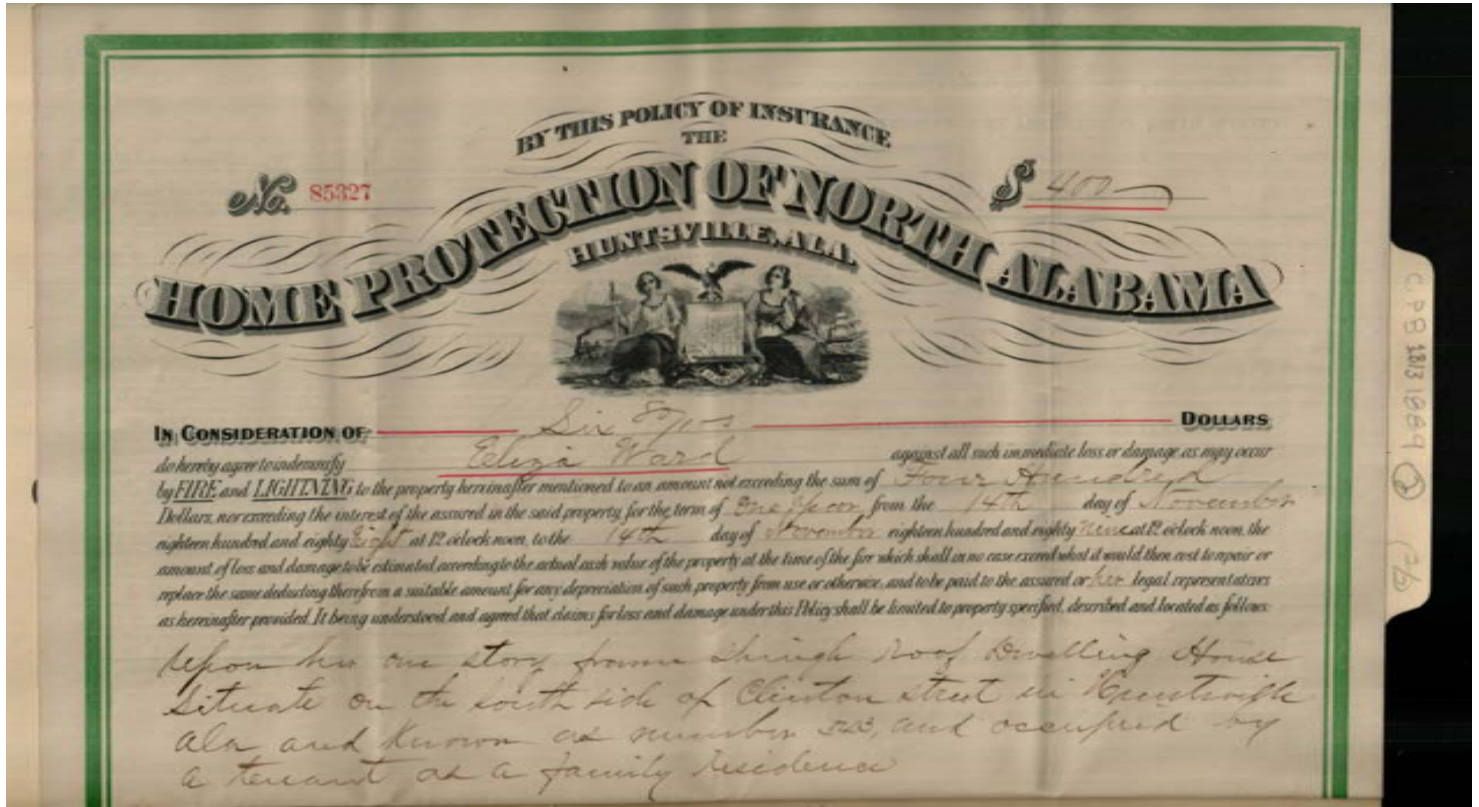 BY THIS POLICY OF INSURANCE
THE
No. 85327
$ 400
HOME PROTECTION OF NORTH ALABAMA
HUNTSVILLE, ALA.
IN CONSIDERATION OF Six DOLLARS
do hereby agree to indemnify Eliza Ward against all such immediate loss or damage as may occur
by FIRE and LIGHTNING to the property hereinafter mentioned to an amount not exceeding the sum of Four Hundred
Dollars, nor exceeding the interest of the assured in the said property, for the term of One Year from the 14th day of November
eighteen hundred and eighty Eight at 12 oclock noon, to the 14th day of November eighteen hundred and eighty Nine at 12 oclock noon, the
amount of loss and damage to be estimated according to the actual cash value of the property at the time of the fire which shall in no case exceed what it would then cost to repair or
replace the same deducting therefrom a suitable amount for any depreciation of such property from use or otherwise, and to be paid to the assured or her legal representatives
as hereinafter provided. It being understood and agreed that claims for loss and damage under this Policy shall be limited to property specified, described and located as follows:
Upon her one story frame shingle Roof Dwelling House
Situate on the south side of Clinton street in Huntsville
Ala and Known as number and occupied by
a tenant as a family residence
C. PB 1889 2